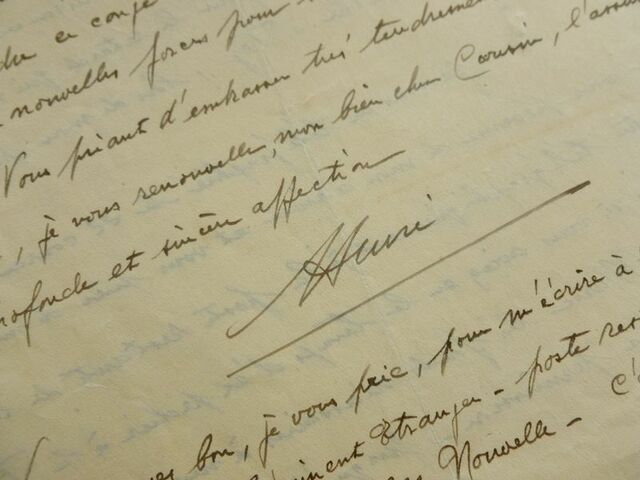 ce congé
nouvelles forces pour
Vous priant d'embrasser très tendrement
, je vous renouvelle, mon bien cher Cousin, l'assu
profonde et sincère affection
Henri
bon, je vous prie, pour m'écrire à
Étranger - poste res
Nouvelle - C'